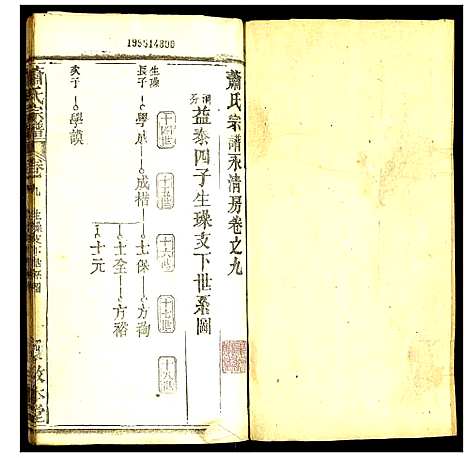 199514800
蕭氏宗譜永清房卷之九
清分益泰四子生璪支下世系圖
十四世
十五世
十六世
十七世
十八世
生璪
長子 學成 成楷 士保 方洵
士全 方裕
士元
次子 學謨
蕭氏宗譜
卷之九
生璪支下世系圖
敦本堂